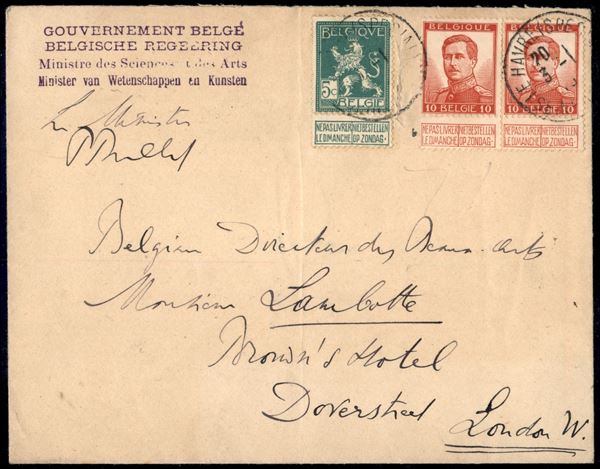 GOUVERNEMENT BELGE
BELGISCHE REGEERING
Ministre des Sciences et des Arts
Minister van Wetenschappen en Kunsten
Le Ministre
BELGIQUE
5c
BELGIË
NE PAS LIVRER NIET BESTELLEN
LE DIMANCHE OP ZONDAG
BELGIQUE
10 BELGIË 10
NE PAS LIVRER NIET BESTELLEN
LE DIMANCHE OP ZONDAG
BELGIQUE
10 BELGIË 10
NE PAS LIVRER NIET BESTELLEN
LE DIMANCHE OP ZONDAG
LE HAVRE (SPECIAL)
20
Belgian Directeur des Beaux-arts
Monsieur Lambotte
Brown's Hotel
Doverstreet
London W.